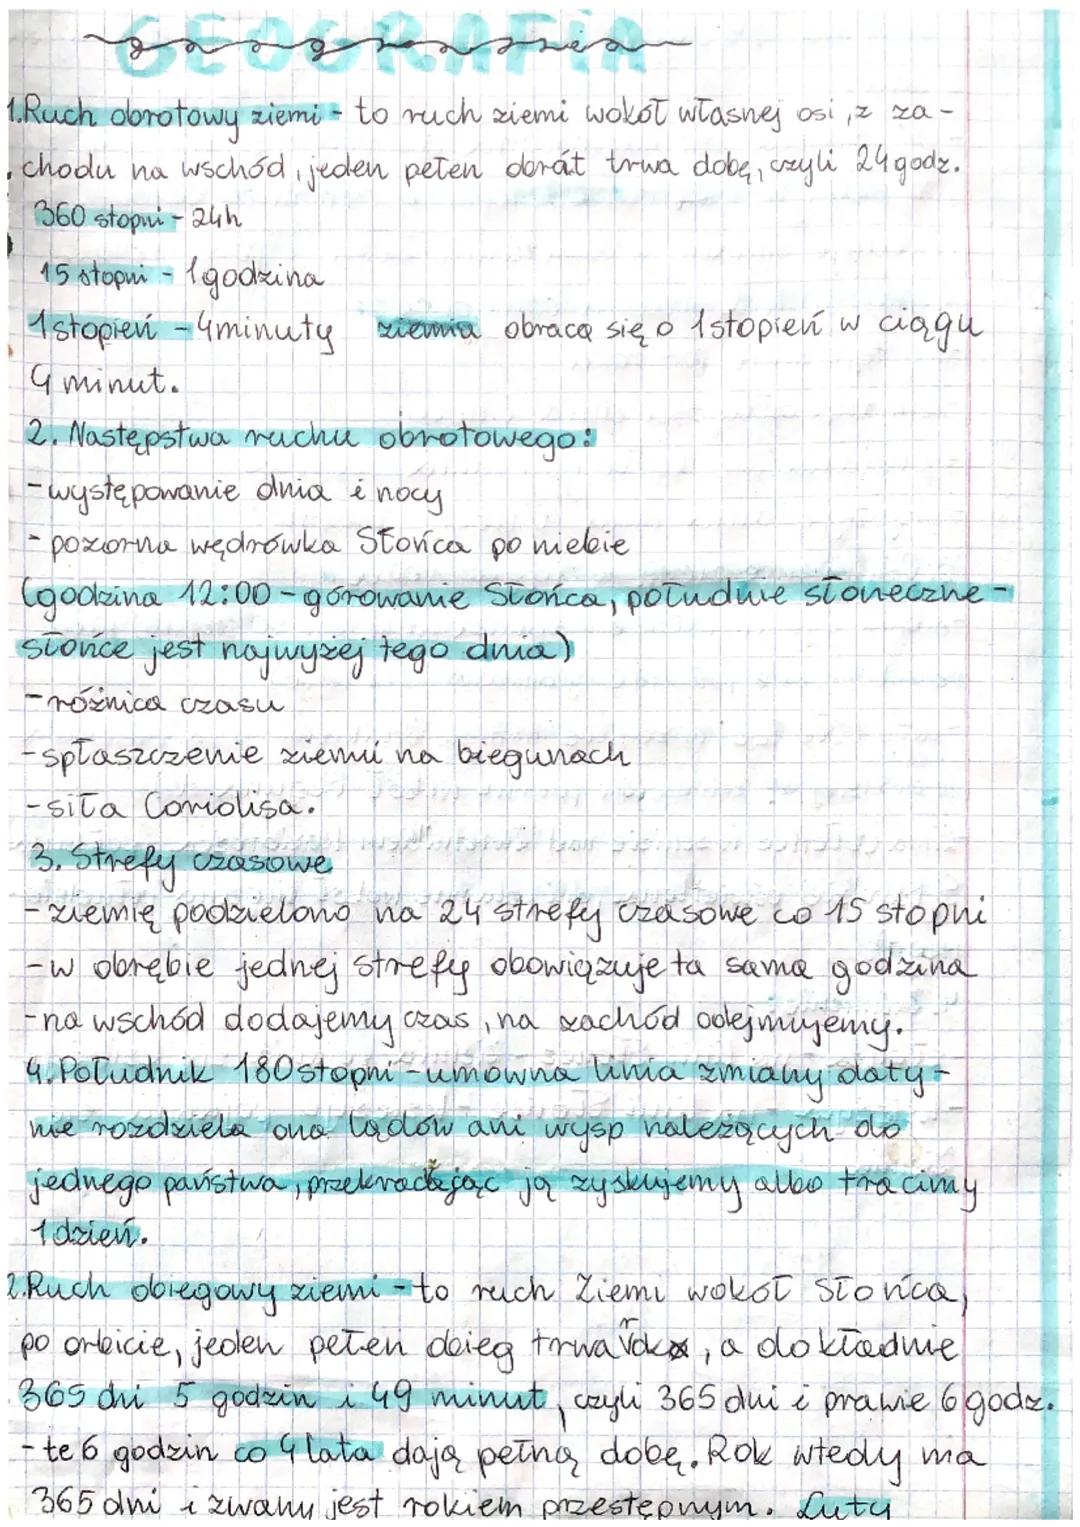 GEOGRAFIA
geografia
1.Ruch obrotowy ziemi - to ruch ziemi wokół własnej osi, z za-
chodu na wschód, jeden pełen obrát trwa dobę, czyli 24godz.
360 stopni - 24h
15 stopni - 1godzina
1stopień - 4minuty ziemia obraca się o 1stopień w ciągu
4 minut.
2. Następstwa ruchu obrotowego:
-występowanie dnia i nocy
- pozorna wędrówka Słońca po niebie
(godzina 12:00 - górowanie Słońca, południe słoneczne -
słońce jest najwyżej tego dnia)
-różnica czasu
-spłaszczenie ziemi na biegunach
-siła Coriolisa.
3. Strefy czasowe
-ziemię podzielono na 24 strefy czasowe co 15 stopni
-w obrębie jednej strefy obowiązuje ta sama godzina
-na wschód dodajemy czas, na zachód odejmujemy.
4. Południk 180stopni - umowna linia zmiany daty -
nie rozdziela ona lądów ani wysp należących do
jednego państwa, przekraczając ją zyskujemy albo tracimy
1dzień.
2.Ruch obiegowy ziemi - to ruch Ziemi wokół Słońca,
po orbicie, jeden pełen obieg trwa rok, a dokładnie
365 dni 5 godzin i 49 minut, czyli 365 dni i prawie 6 godz.
- te 6 godzin co 4 lata dają pełną dobę. Rok wtedy ma
365 dni i zwany jest rokiem przestępnym. Luty